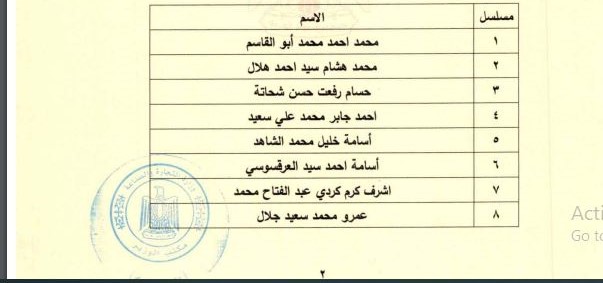 مسلسل الاسم
١ محمد احمد محمد أبو القاسم
٢ محمد هشام سيد احمد هلال
٣ حسام رفعت حسن شحاتة
٤ احمد جابر محمد علي سعيد
٥ أسامة خليل محمد الشاهد
٦ أسامة احمد سيد العرقسوسي
٧ اشرف كرم كردي عبد الفتاح محمد
٨ عمرو محمد سعيد جلال
وزارة التجارة والصناعة
مكتب الوزير
٢
Acti
Go to